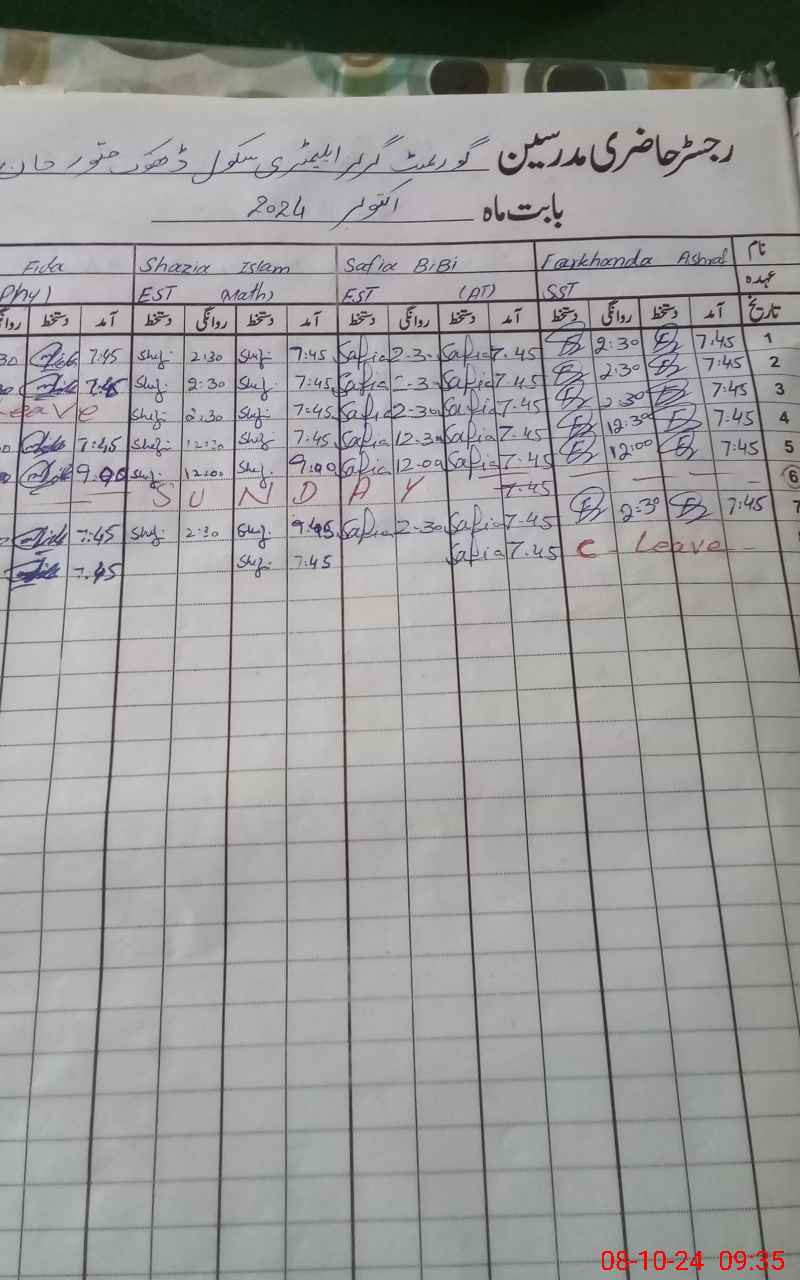 رجسٹر حاضری مدرسین گورنمنٹ گرلز ایلیمنٹری سکول ڈھوک
بابت ماہ اکتوبر 2024
نام Farkhanda Ashraf Safia BiBi Shazia Islam Fida
عہدہ SST EST (AT) EST (Math) Phy)
تاریخ آمد دستخط روانگی دستخط آمد دستخط روانگی دستخط آمد دستخط روانگی دستخط آمد دستخط
1 7:45 2:30 7.45 Safia 2.30 Safia 7:45 Shz. 2:30 Shz. 7:45 30
2 7:45 2:30 7.45 Safia 2.30 Safia 7:45 Shz. 2:30 Shz. 7:45
3 7:45 2:30 7.45 Safia 2.30 Safia 7:45 Shz. 2:30 Shz. Leave
4 7:45 12:30 7.45 Safia 12.30 Safia 7:45 Shz 12:30 Shz. 7:45
5 7:45 12:00 7.45 Safia 12.00 Safia 9:00 Shz. 12:00 Shz. 9:00
6 7.45 SUNDAY
7 7:45 2:30 7.45 Safia 2.30 Safia 7:45 Shz. 2:30 Shz. 7:45
C - Leave - 7.45 Safia 7:45 Shz. 7:45
08-10-24 09:35